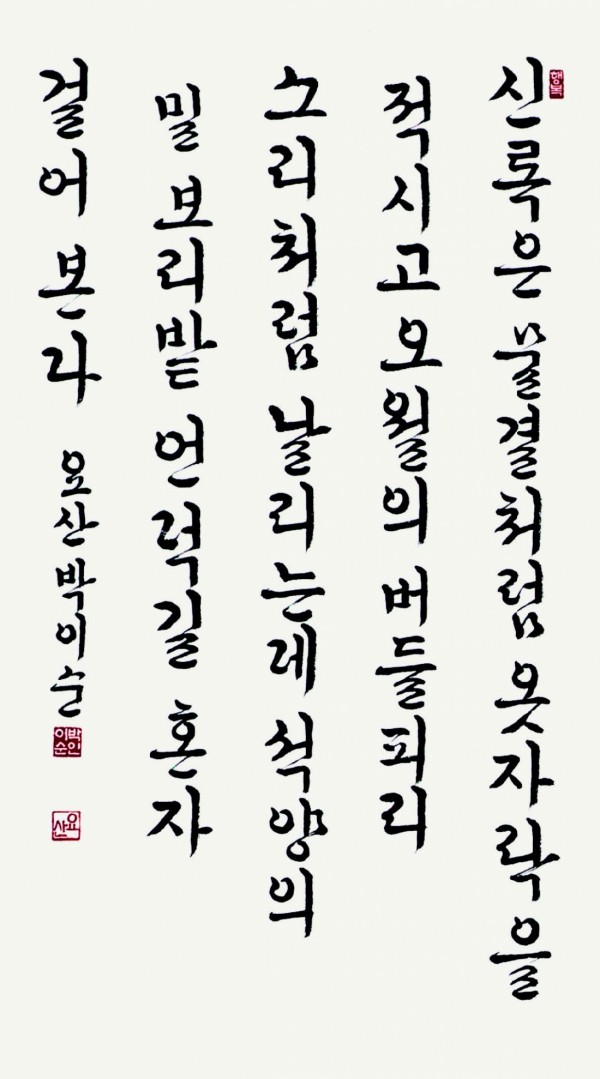 행복
신록은 물결처럼 옷자락을
적시고 오월의 버들피리
소리처럼 날리는데 석양의
밀 보리밭 언덕길 혼자
걸어 본다 요산 박이순
박이순인
요산